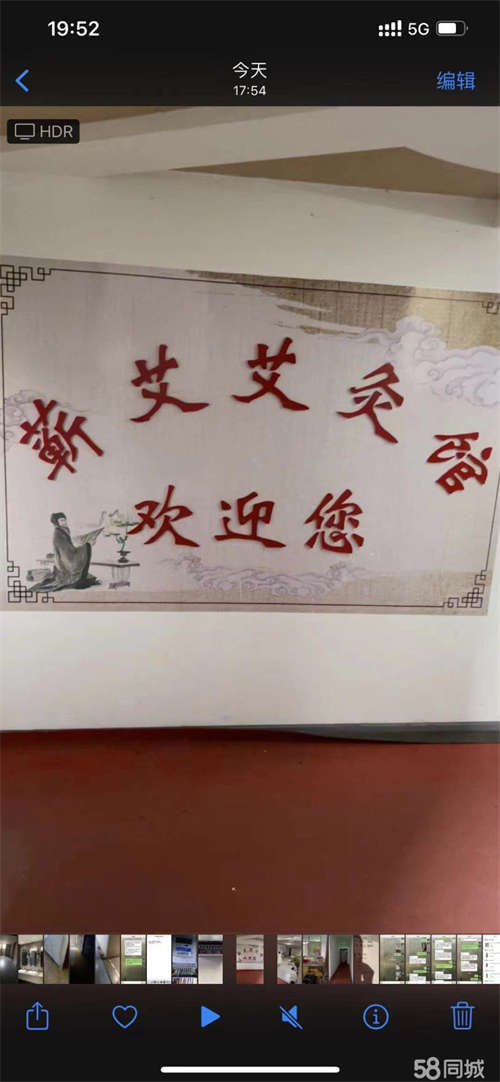 19:52
5G
今天
17:54
编辑
HDR
蕲艾艾灸馆
欢迎您
58同城